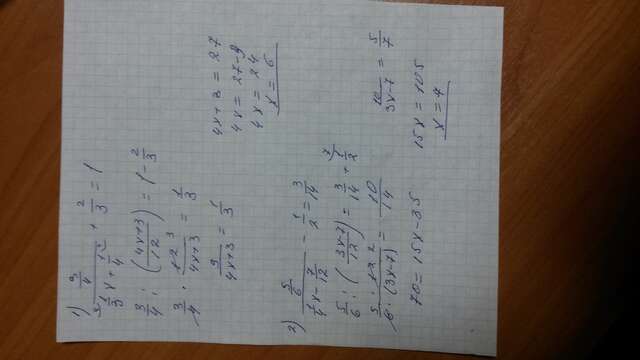 1) (3/4)/(1/3 x + 1/4) + 2/3 = 1
3/4 : ((4x+3)/12) = 1 - 2/3
3/4 · 12³/(4x+3) = 1/3
9/(4x+3) = 1/3
4x+3 = 27
4x = 27-3
4x = 24
x = 6
2) (5/6)/(1/4 x - 7/12) - 1/2 = 3/14
5/6 : ((3x-7)/12) = 3/14 + ⁷⁾1/2
5 · 12²/(6 · (3x-7)) = 10/14
10/(3x-7) = 5/7
70 = 15x-35
15x = 105
x = 7